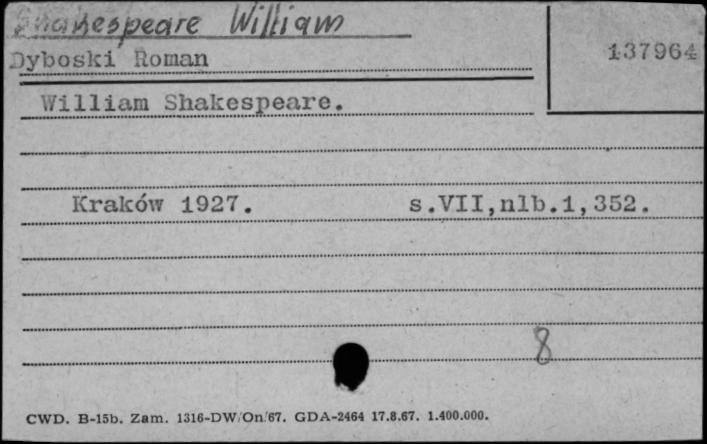 Shakespeare William
Dyboski Roman
137964
William Shakespeare.
Kraków 1927. s.VII,nlb.1,352.
8
CWD. B-15b. Zam. 1316-DW/On/67. GDA-2464 17.8.67. 1.400.000.